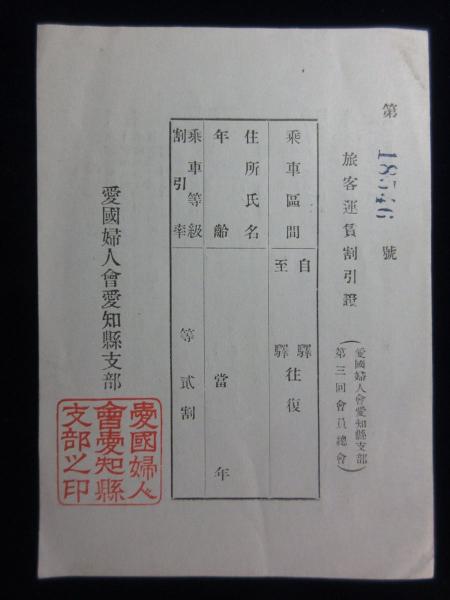 第 18546 號
旅客運賃割引證
(愛國婦人會愛知縣支部
第三回會員總會)
乘車區間
自 驛
至 驛
往復
住所氏名
年齡
當 年
乘車等級
割引率
等 貳割
愛國婦人會愛知縣支部
愛國婦人
會愛知縣
支部之印